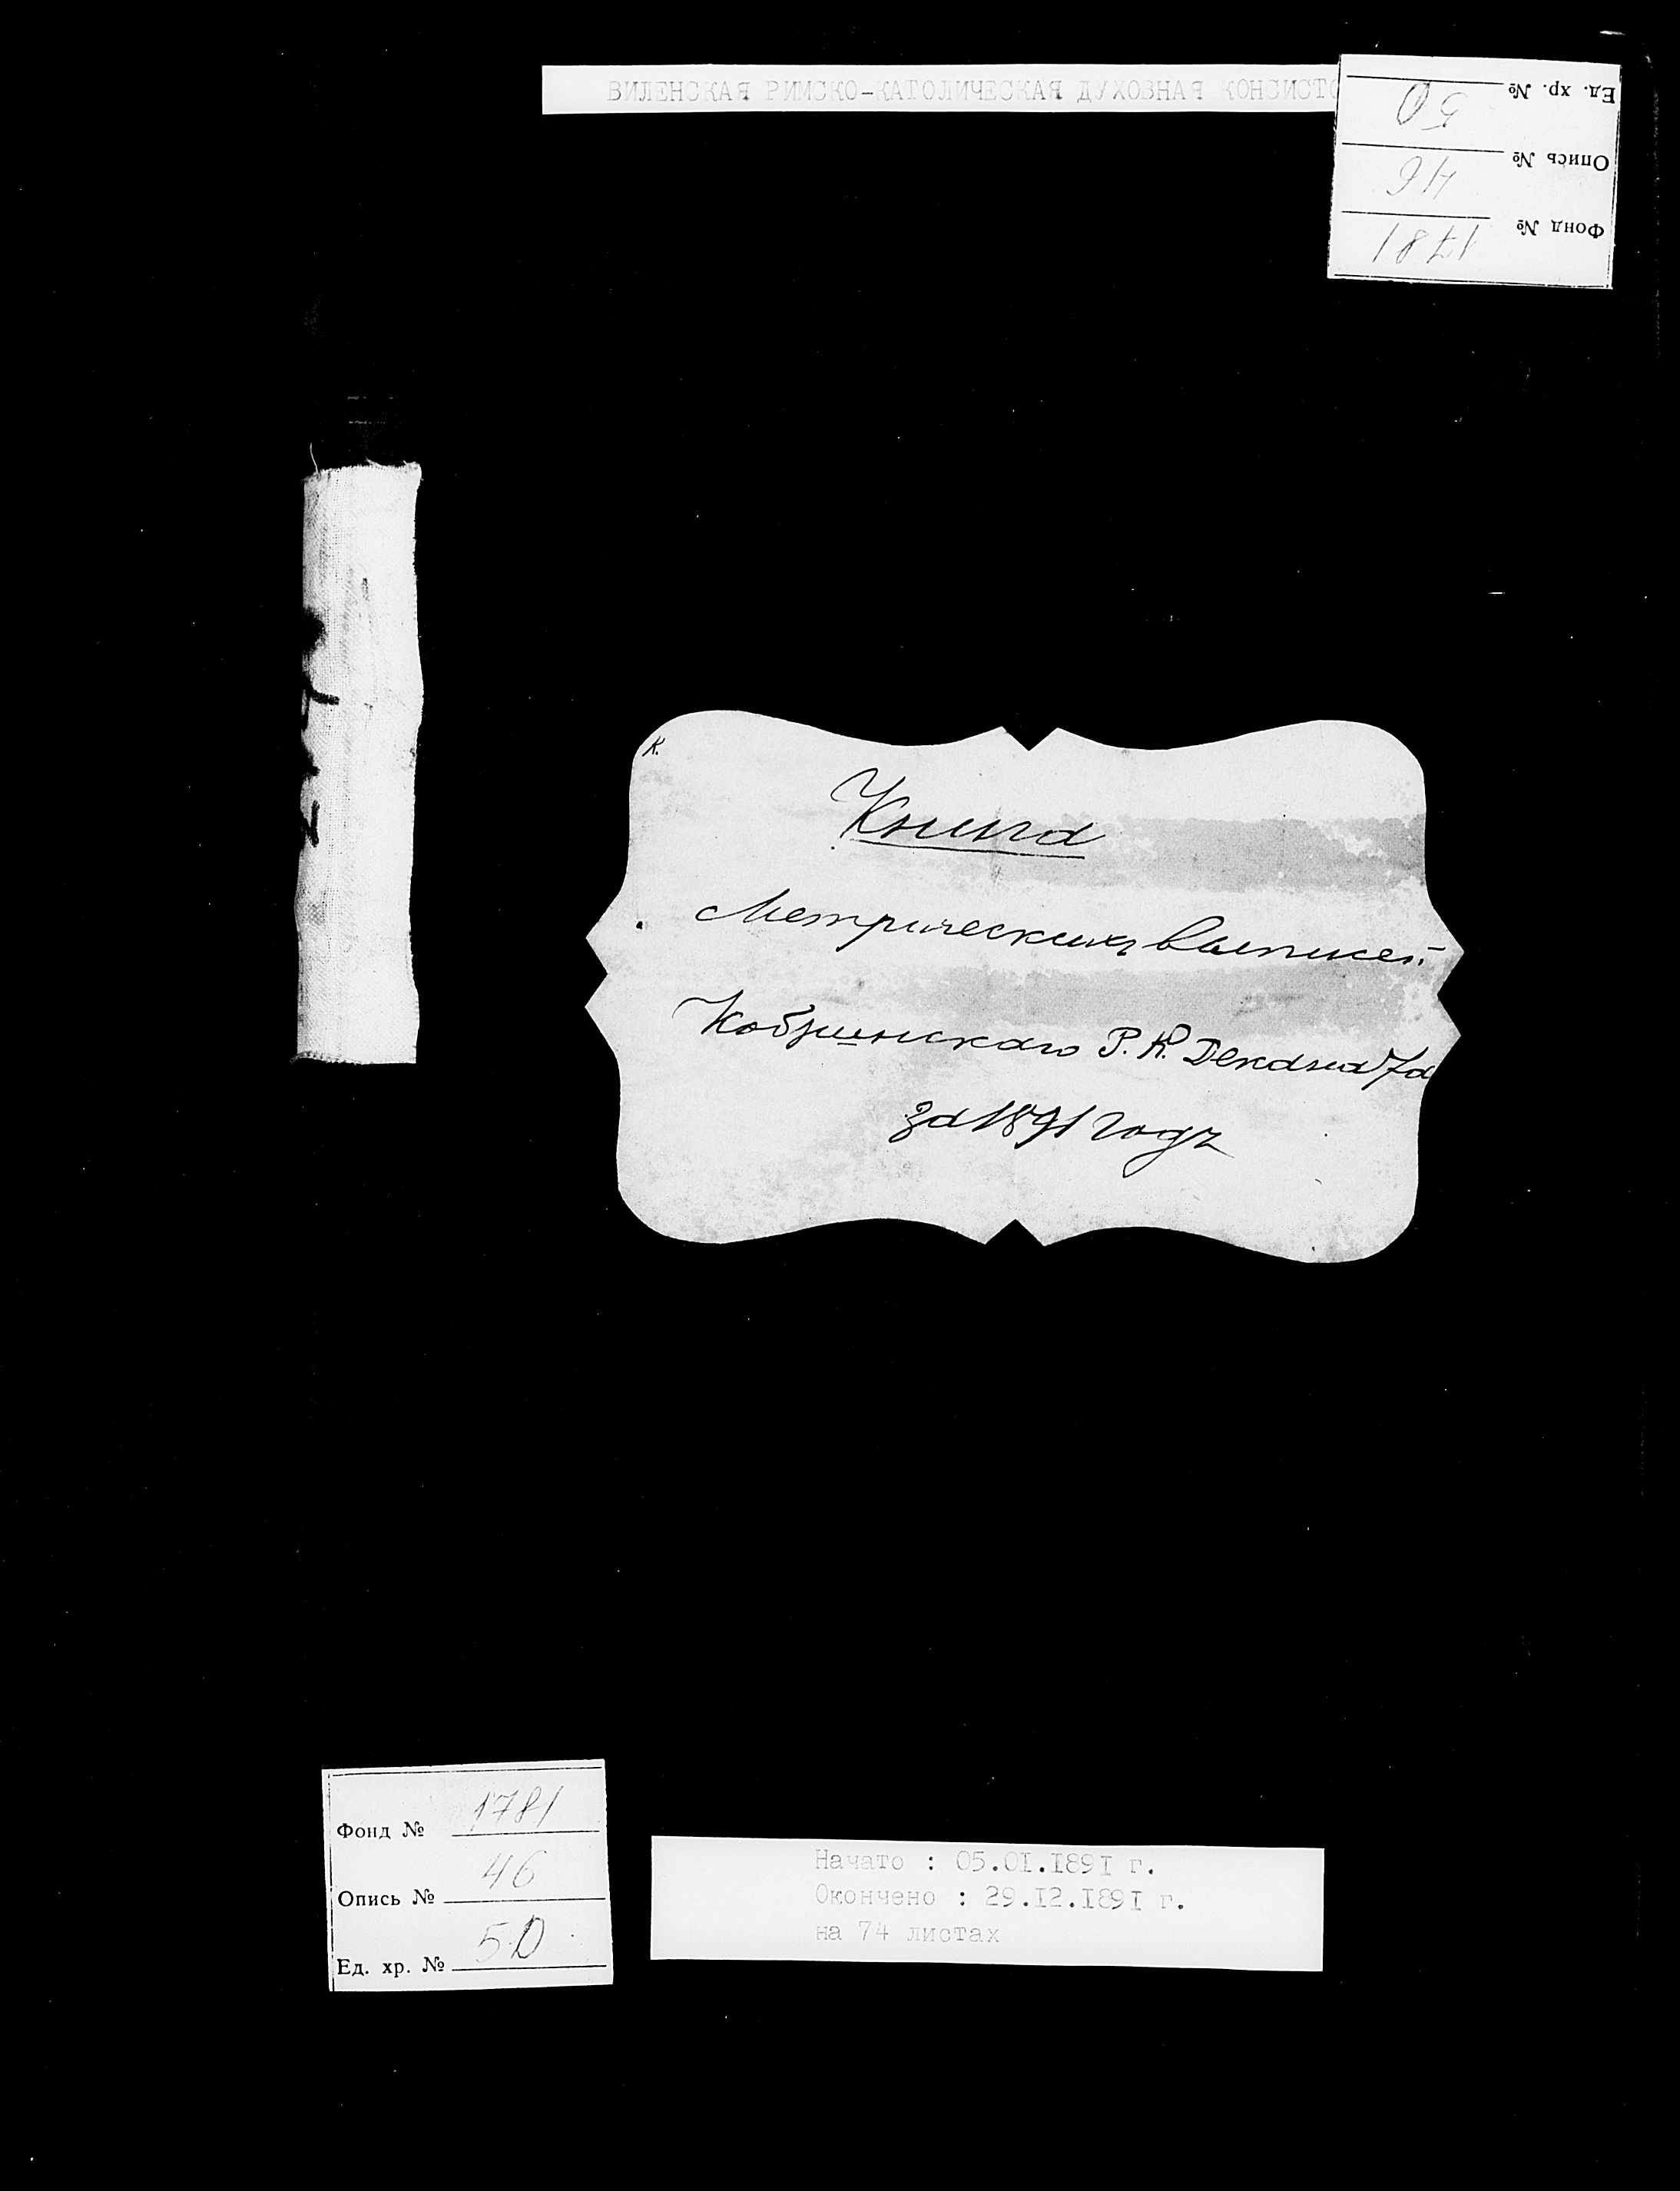 ВИЛЕНСКАЯ РИМСКО-КАТОЛИЧЕСКАЯ ДУХОВНАЯ КОНСИСТО
Ед. хр. № 50
Опись № 46
Фонд № 1781
К.
Книга
Метрическихъ выписей
Кобринскаго Р. К. Деканата
за 1891 годъ
Фонд № 1781
Опись № 46
Ед. хр. № 50
Начато : 05.01.1891 г.
Окончено : 29.12.1891 г.
на 74 листах